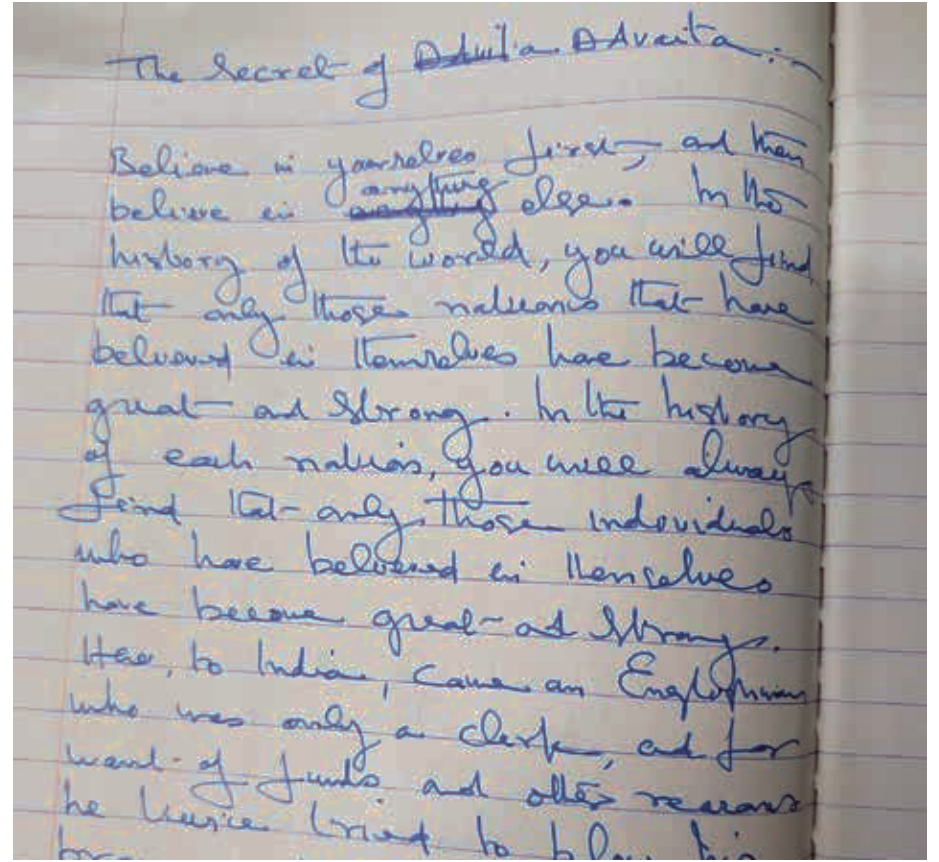 The Secret of Advaita.
Believe in yourselves first, and then
believe in anything else. In the
history of the world, you will find
that only those nations that have
believed in themselves have become
great and strong. In the history
of each nation, you will always
find that only those individuals
who have believed in themselves
have become great and strong.
Here, to India, came an Englishman
who was only a clerk, and for
want of funds and other reasons
he twice tried to blow his